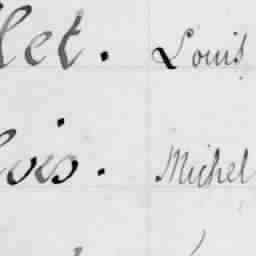 let. Louis
lois. Michel